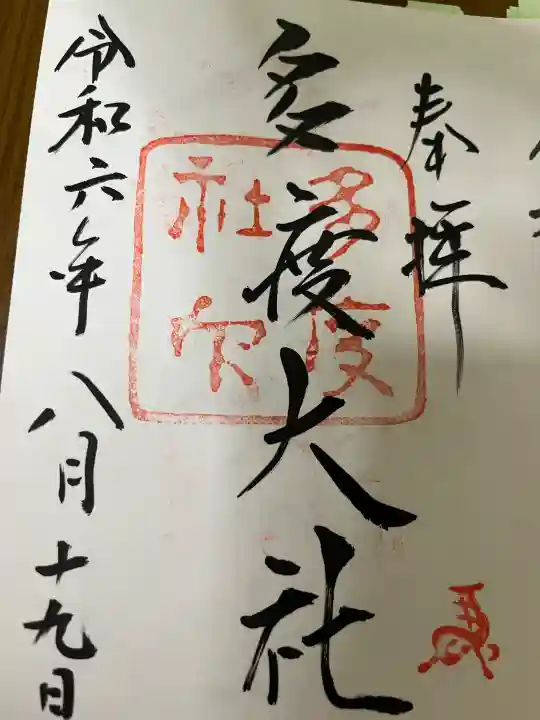 奉拝
多度大社
多度
社印
令和六年八月十九日